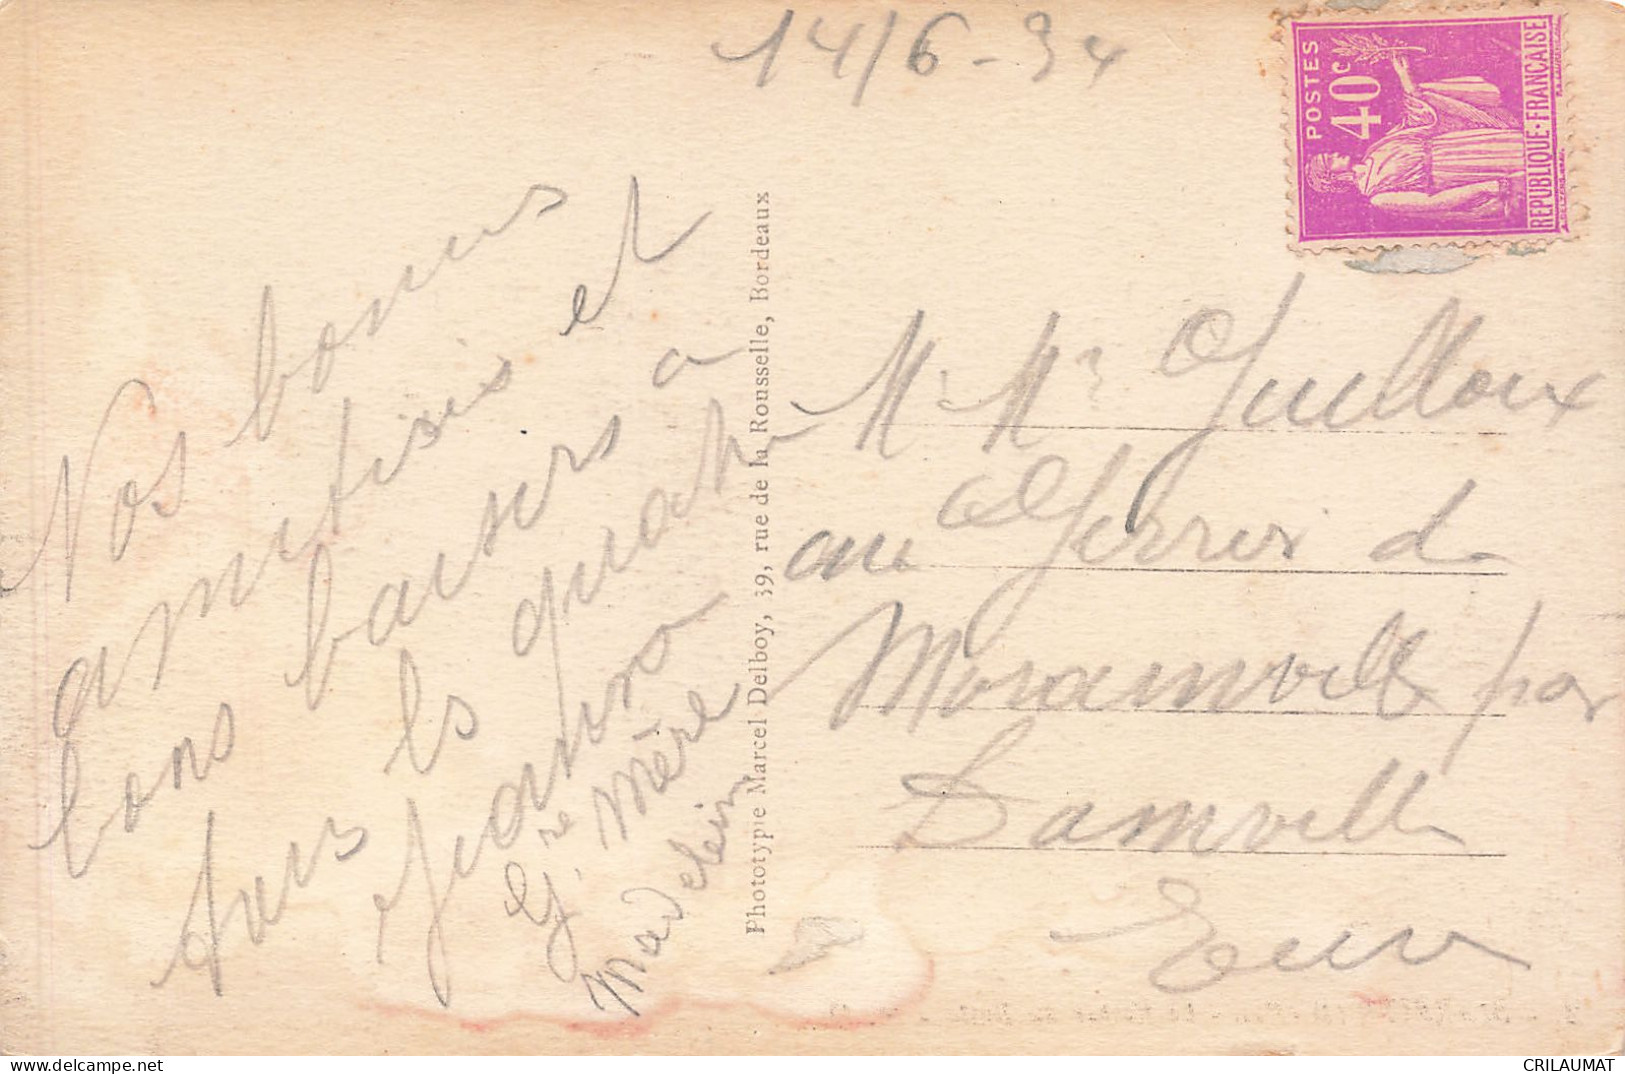 14/6-34
POSTES
40c
REPUBLIQUE·FRANCAISE
Nos bonnes
amitisis et
bons baisers a
tous ls quatre
Gre Mère
Madelein
Phototypie Marcel Delboy, 39, rue de la Rousselle, Bordeaux
M. Me Guilloux
au de
Moramville par
Damville
Eure
CRILAUMAT